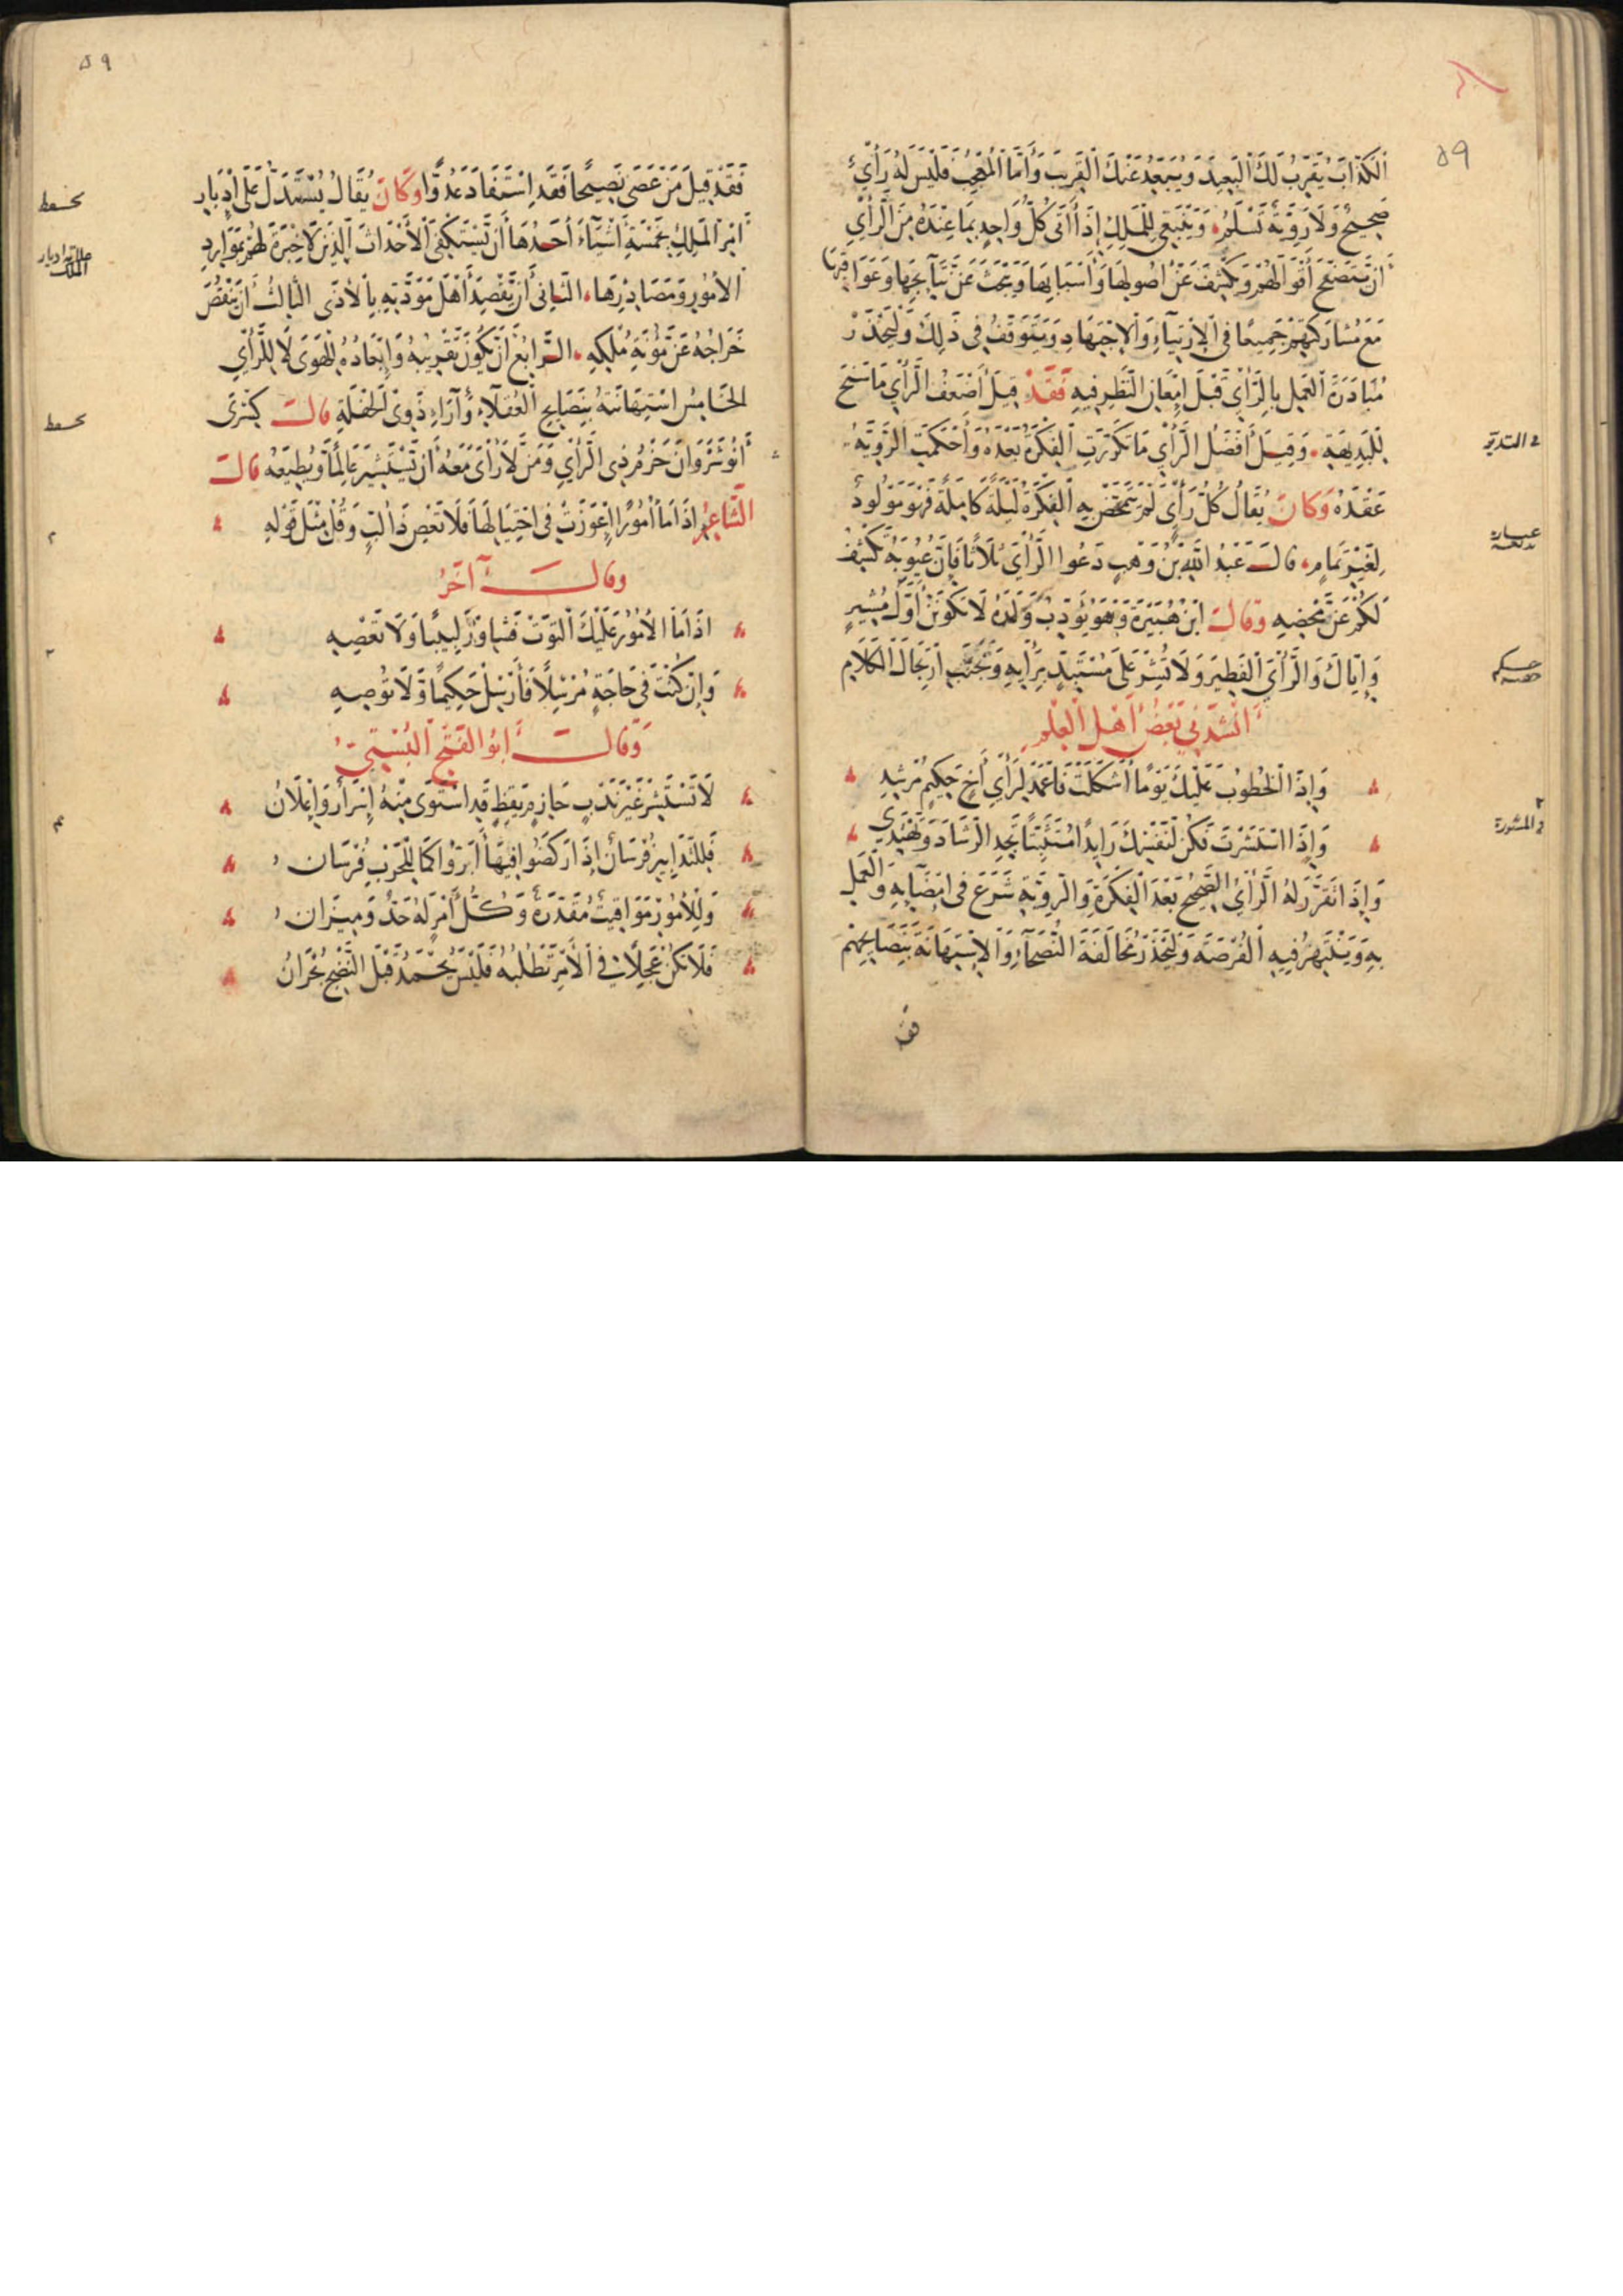 ٥٩
الكَذّابَ يُقَرِّبُ لَكَ البَعِيدَ وَيُبَعِّدُ عَنْكَ القَرِيبَ وَأَمَّا المُعْجِبُ فَلَيْسَ لَهُ رَأْيٌ
صَحِيحٌ وَلَا رَوِيَّةٌ تَسْلَمُ وَيَنْبَغِي لِلْمَلِكِ إِذَا أَتَى كُلُّ وَاحِدٍ بِمَا عِنْدَهُ مِنَ الرَّأْيِ
أَنْ يَتَصَفَّحَ أَقْوَالَهُمْ وَيَكْشِفَ عَنْ أُصُولِهَا وَأَسْبَابِهَا وَيَبْحَثَ عَنْ نَتَايِجِهَا وَعَوَاقِبِهَا
مَعَ مُشَارَكَتِهِمْ جَمِيعًا فِي الِارْتِيَآءِ وَالِاجْتِهَادِ وَيَتَوَقَّفُ فِي ذَلِكَ وَلْيَحْذَرْ
مُبَادَرَةَ العَمَلِ بِالرَّأْيِ قَبْلَ إِمْعَانِ النَّظَرِ فِيهِ فَقَدْ قِيلَ أَضْعَفُ الرَّأْيِ مَا سَنَحَ
لِلْبَدِيهَةِ وَقِيلَ أَفْضَلُ الرَّأْيِ مَا تَكَرَّرَتِ الفِكْرَةُ بَعْدَهُ وَأَحْكَمَتِ الرَّوِيَّةُ
فى التدبير
عَقْدَهُ وَكَانَ يُقَالُ كُلُّ رَأْيٍ لَمْ تَتَمَخَّضْ بِهِ الفِكْرَةُ لَيْلَةً كَامِلَةً فَهُوَ مَوْلُودٌ
لِغَيْرِ تَمَامٍ قَالَ عَبْدُ اللهِ بْنُ وَهْبٍ دَعُوا الرَّأْيَ ثَلَاثًا فَإِنَّ غُيُوبَهُ تَكْشِفُ
عبارة
لَكُمْ عَنْ مَحْضِهِ وَقَالَ ابْنُ هُبَيْرَةَ وَهُوَ يُؤَدِّبُ وَلَدَهُ لَا تَكُونَنَّ أَوَّلَ مُشِيرٍ
وَإِيَّاكَ وَالرَّأْيَ الفَطِيرَ وَلَا تُشِرْ عَلَى مُسْتَبِدٍّ بِرَأْيِهِ وَتَجَنَّبِ ارْتِجَالَ الكَلَامِ
أَنْشَدَنِي بَعْضُ أَهْلِ العِلْمِ
وَإِذَا الخُطُوبُ عَلَيْكَ يَوْمًا أَشْكَلَتْ فَاعْمَدْ لِرَأْيِ أَخٍ حَكِيمٍ مُرْشِدِ
وَإِذَا اسْتَشَرْتَ فَكُنْ لِنَفْسِكَ رَايِدًا مُتَثَبِّتًا تَجِدِ الرَّشَادَ وَتَهْتَدِي
فى المشورة
وَإِذَا تَقَرَّرَ لَهُ الرَّأْيُ الصَّحِيحُ بَعْدَ الفِكْرَةِ وَالرَّوِيَّةِ شَرَعَ فِي إِمْضَآيِهِ وَالعَمَلِ
بِهِ وَيَنْتَهِزُ فِيهِ الفُرْصَةَ وَلْيَحْذَرْ مُخَالَفَةَ النُّصَحَآءِ وَالِاسْتِهَانَةَ بِنَصَايِحِهِمْ
فقد
٥٩
فَقَدْ قِيلَ مَنْ عَصَى نَصِيحًا فَقَدِ اسْتَفَادَ عَدُوًّا وَكَانَ يُقَالُ يُسْتَدَلُّ عَلَى إِدْبَارِ
أَمْرِ المَلِكِ بِخَمْسَةِ أَشْيَآءَ أَحَدُهَا أَنْ يَسْتَكْفِيَ الأَحْدَاثَ الَّذِينَ لَا خِبْرَةَ لَهُمْ بِمَوَارِدِ
ادبار الملك
الأُمُورِ وَمَصَادِرِهَا الثَّانِي أَنْ يَقْصِدَ أَهْلَ مَوَدَّتِهِ بِالأَذَى الثَّالِثُ أَنْ يَنْقُصَ
خَرَاجُهُ عَنْ مُؤْنَةِ مُلْكِهِ الرَّابِعُ أَنْ يَكُونَ تَقْرِيبُهُ وَإِبْعَادُهُ لِلْهَوَى لَا لِلرَّأْيِ
الخَامِسُ اسْتِهَانَتُهُ بِنَصَايِحِ العُقَلَآءِ وَآرَاءِ ذَوِي الحُنْكَةِ قَالَ كِسْرَى
أَنُوشَرْوَانَ حَزْمُ ذِي الرَّأْيِ وَمَنْ لَا رَأْيَ مَعَهُ أَنْ يَسْتَشِيرَ عَالِمًا وَيُطِيعَهُ قَالَ
الشَّاعِرُ إِذَا مَا أُمُورٌ أَعْوَزَتْ فِي احْتِيَالِهَا فَلَا تَعْصِ ذَا لُبٍّ وَقُلْ مِثْلَ قَوْلِهِ
وَقَالَ آخَرُ
إِذَا مَا الأُمُورُ عَلَيْكَ الْتَوَتْ فَشَاوِرْ لَبِيبًا وَلَا تَعْصِهِ
وَإِنْ كُنْتَ فِي حَاجَةٍ مُرْسِلًا فَأَرْسِلْ حَكِيمًا وَلَا تُوصِهِ
وَقَالَ أَبُو الفَتْحِ البُسْتِيُّ
لَا تَسْتَشِرْ غَيْرَ نَدْبٍ حَازِمٍ يَقِظٍ قَدِ اسْتَوَى مِنْهُ إِسْرَارٌ وَإِعْلَانُ
فَلِلتَّدَابِيرِ فُرْسَانٌ إِذَا رَكَضُوا فِيهَا أَبَرُّوا كَمَا لِلْحَرْبِ فُرْسَانُ
وَلِلْأُمُورِ مَوَاقِيتٌ مُقَدَّرَةٌ وَكُلُّ أَمْرٍ لَهُ حَدٌّ وَمِيزَانُ
فَلَا تَكُنْ عَجِلًا فِي الأَمْرِ تَطْلُبُهُ فَلَيْسَ يُحْمَدُ قَبْلَ النُّضْجِ بُحْرَانُ